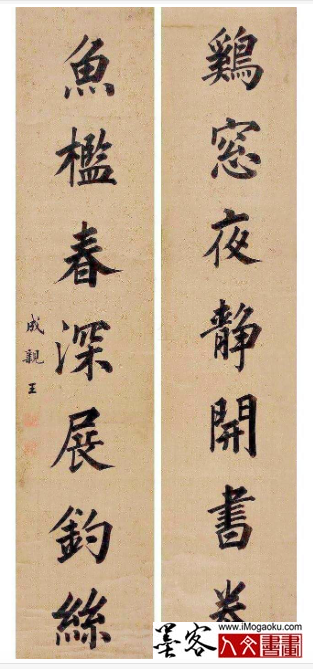 鷄窓夜静開書卷
魚檻春深展釣絲
成親王
www.iMogaoku.com
墨客
人文書畫